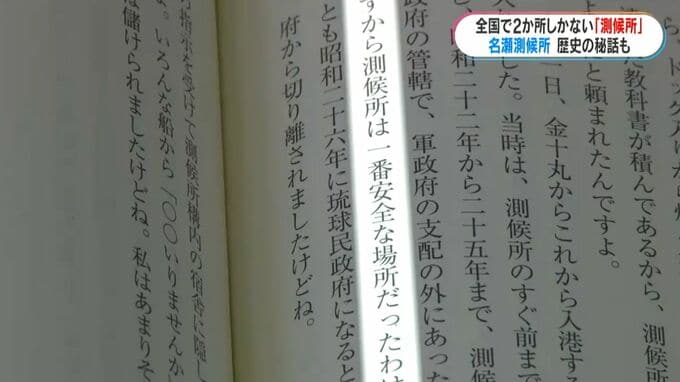 全国で2か所しかない「測候所」
名瀬測候所 歴史の秘話も
た教科書が積んであるから、測候所
と頼まれたんですよ。
日、金十丸からこれから入港す
した。当時は、測候所のすぐ前ま
も昭和二十二年から二十五年まで、測候
政府の管轄で、軍政府の支配の外にあっ
すから測候所は一番安全な場所だったわけ
とも昭和二十六年に琉球民政府になると
府から切り離されましたけどね。
指示を受けて測候所構内の宿舎に隠し
よ。いろんな船から「〇〇いりませんか
は儲けられましたけどね。私はあまりそ